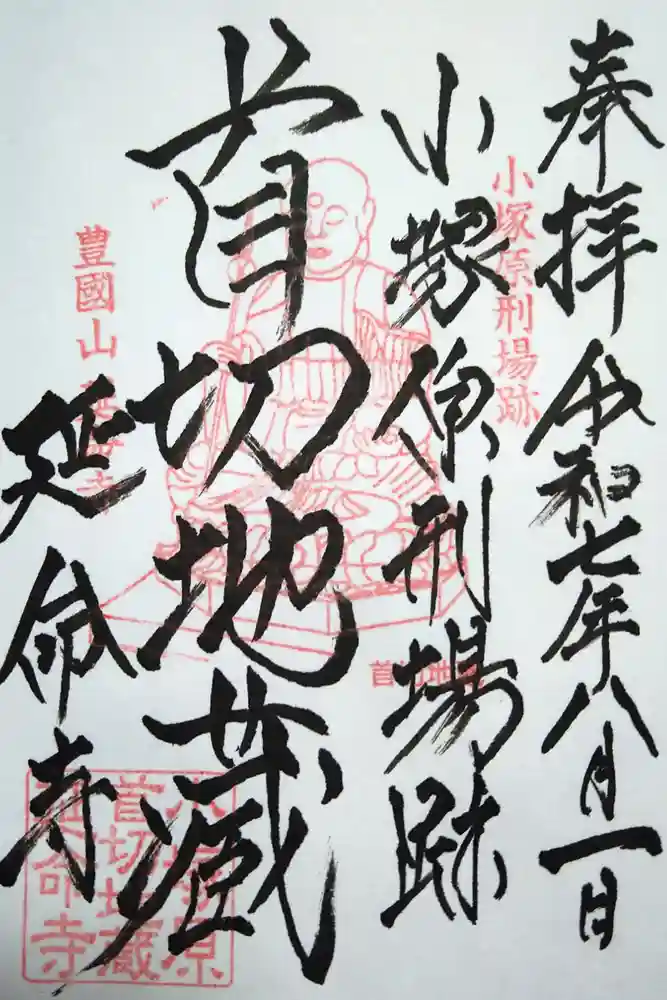 奉拝 令和七年八月一日
小塚原刑場跡
小塚原刑場跡
首切地蔵
首切地蔵
豊國山延命寺
延命寺
小塚原
首切地蔵
延命寺